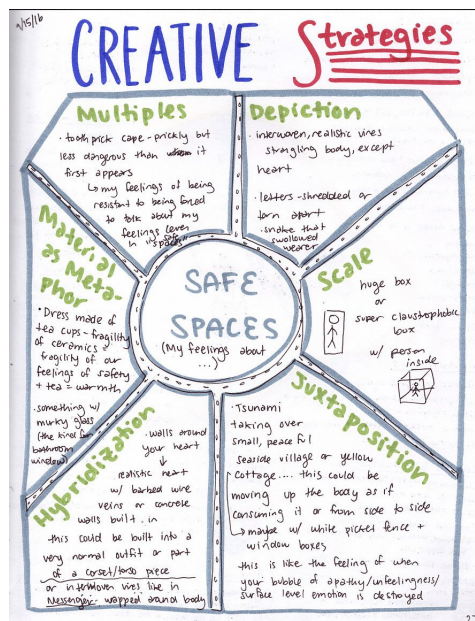 9/15/16
CREATIVE Strategies
Multiples
• toothpick cape - prickly but
less dangerous than it
first appears
↳ my feelings of being
resistant to being forced
to talk about my
feelings (even
in safe
spaces)
Depiction
• interwoven, realistic vines
strangling body, except
heart
• letters - shredded or
torn apart
• snake that
swallowed
wearer
Material
as Meta-
phor
• Dress made of
tea cups - fragility
of ceramics =
fragility of our
feelings of safety
+ tea = warmth
• something w/
murky glass
(the kind for
bathroom
windows)
SAFE
SPACES
(My feelings about
...)
Scale
huge box
or
super claustrophobic
box
w/ person
inside
Hybridization
• walls around
your heart
↓
realistic heart
w/ barbed wire
veins or concrete
walls built in
this could be built into a
very normal outfit or part
of a corset/torso piece
or interwoven vines like in
Messenger wrapped around body
Juxtaposition
• Tsunami
taking over
small, peaceful
seaside village or yellow
cottage.... this could be
moving up the body as if
consuming it or from side to side
↳ maybe w/ white picket fence +
window boxes
this is like the feeling of when
your bubble of apathy/unfeelingness/
surface level emotion is destroyed